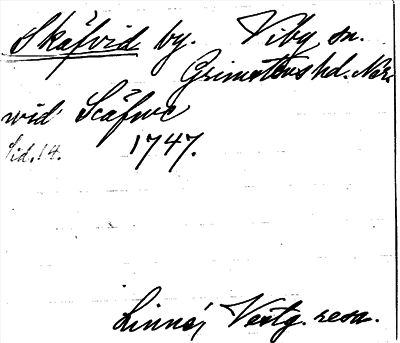 Skåfvid by. Viby sn.
Grimstens hd. När.
wid Scåfwe
Sid. 14. 1747.
Linné, Vestg. resa.